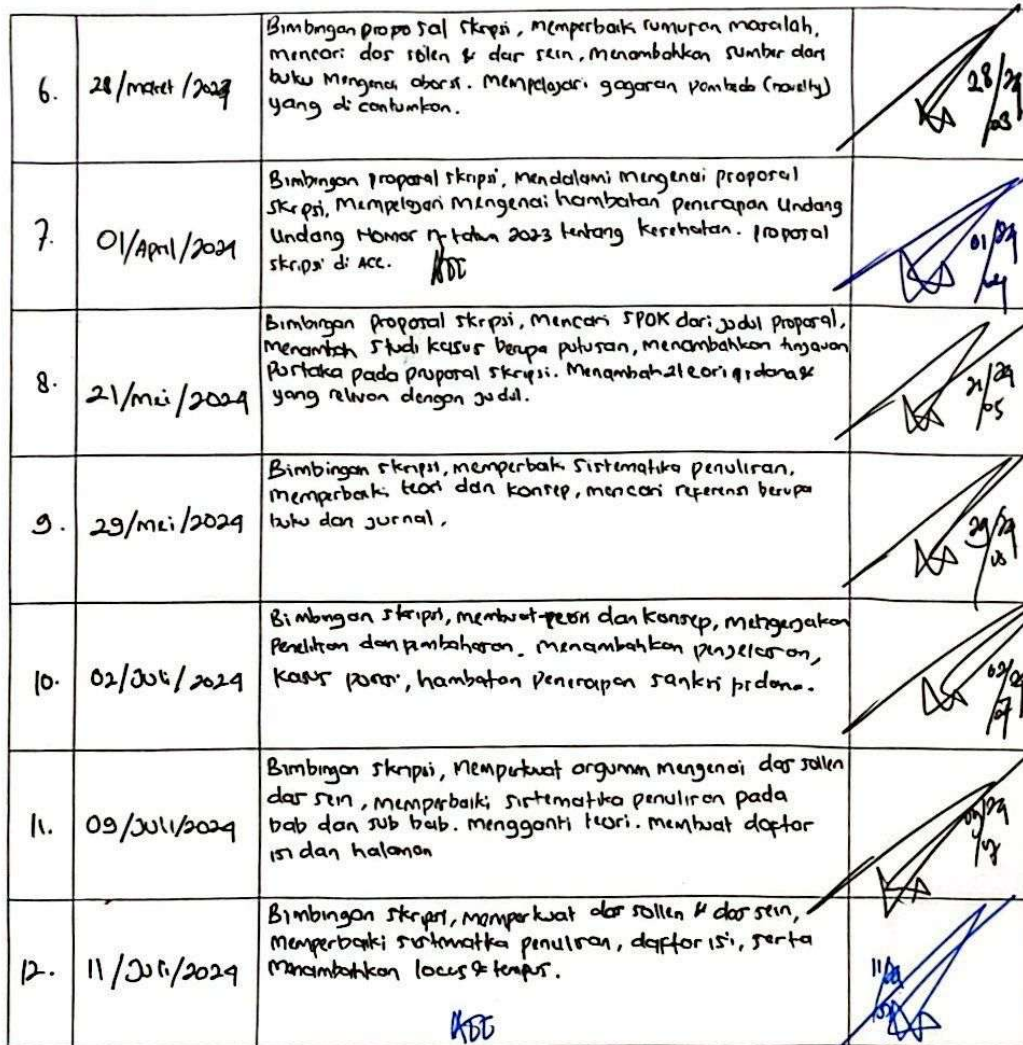 6.
28/maret/2024
Bimbingan proposal skripsi, memperbaik rumusan masalah,
mencari das solen & das sein, menambahkan sumber dari
buku mengenai aborsi. Mempelajari gagasan (novelty)
yang di cantumkan.
28/24
03
7.
01/April/2024
Bimbingan proposal skripsi, Mendalami mengenai proposal
skripsi, Mempelajari mengenai hambatan penerapan Undang
Undang Nomor 17 tahun 2023 tentang kesehatan. proposal
skripsi di ACC.
ACC
01/24
04
8.
21/mei/2024
Bimbingan proposal skripsi, mencari SPOK dari judul proposal,
Menambah studi kasus berupa putusan, menambahkan tinjauan
Pustaka pada proposal skripsi. Menambah 2 teori
yang relevan dengan judul.
21/24
05
9.
29/mei/2024
Bimbingan skripsi, memperbaiki sistematika penulisan,
memperbaiki teori dan konsep, mencari referensi berupa
buku dan jurnal.
29/24
05
10.
02/Juli/2024
Bimbingan skripsi, membuat teori dan konsep, mengerjakan
Penelitian dan pembahasan. menambahkan penjelasan,
kasus posisi, hambatan penerapan sanksi pidana.
02/24
07
11.
09/Juli/2024
Bimbingan skripsi, memperkuat argumen mengenai das sollen
das sein, memperbaiki sistematika penulisan pada
bab dan sub bab. mengganti teori. membuat daftar
isi dan halaman
09/24
07
12.
11/Juli/2024
Bimbingan skripsi, memperkuat das sollen & das sein,
memperbaiki sistematika penulisan, daftar isi, serta
menambahkan locus & tempus.
ACC
11/24
07